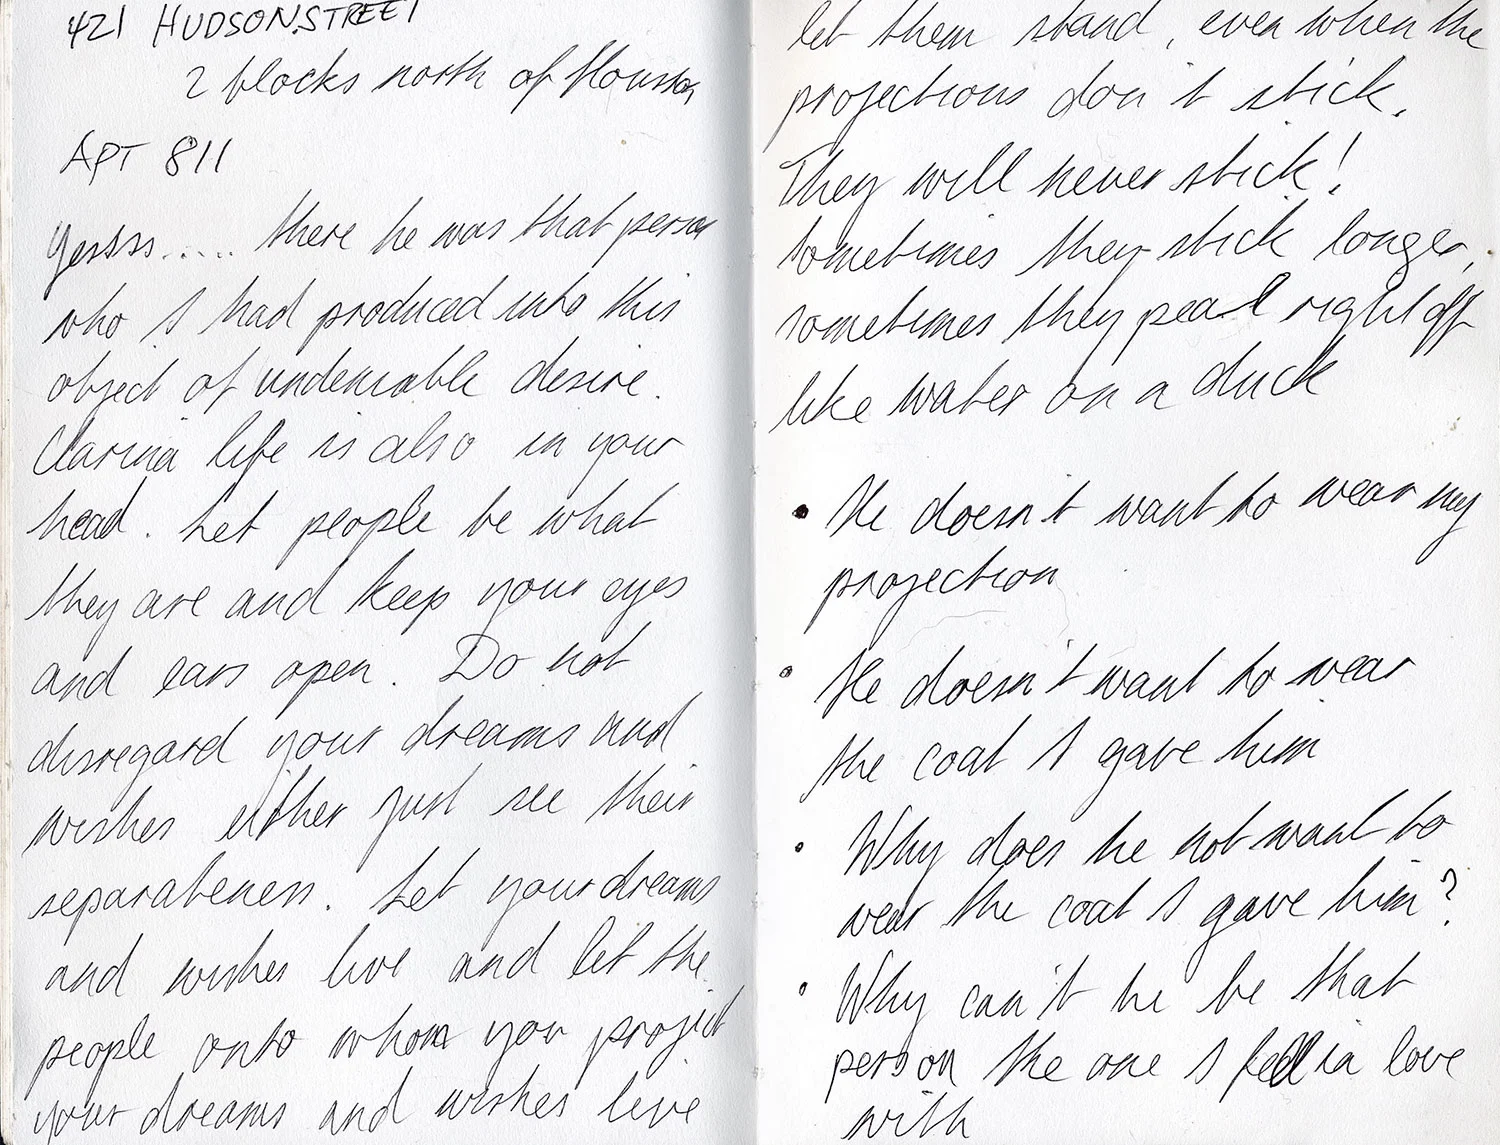 421 HUDSON STREET
2 blocks north of Houston
APT 811
Yessss..... there he was that person
who I had produced into this
object of undeniable desire.
Clarina life is also in your
head. Let people be what
they are and keep your eyes
and ears open. Do not
disregard your dreams and
wishes either just see their
separateness. Let your dreams
and wishes live and let the
people onto whom you project
your dreams and wishes live
let them stand, even when the
projections don't stick.
They will never stick!
Sometimes they stick longer,
sometimes they peal right off
like water on a duck
• He doesn't want to wear my
projection
• He doesn't want to wear
the coat I gave him
• Why does he not want to
wear the coat I gave him?
• Why can't he be that
person the one I fell in love
with